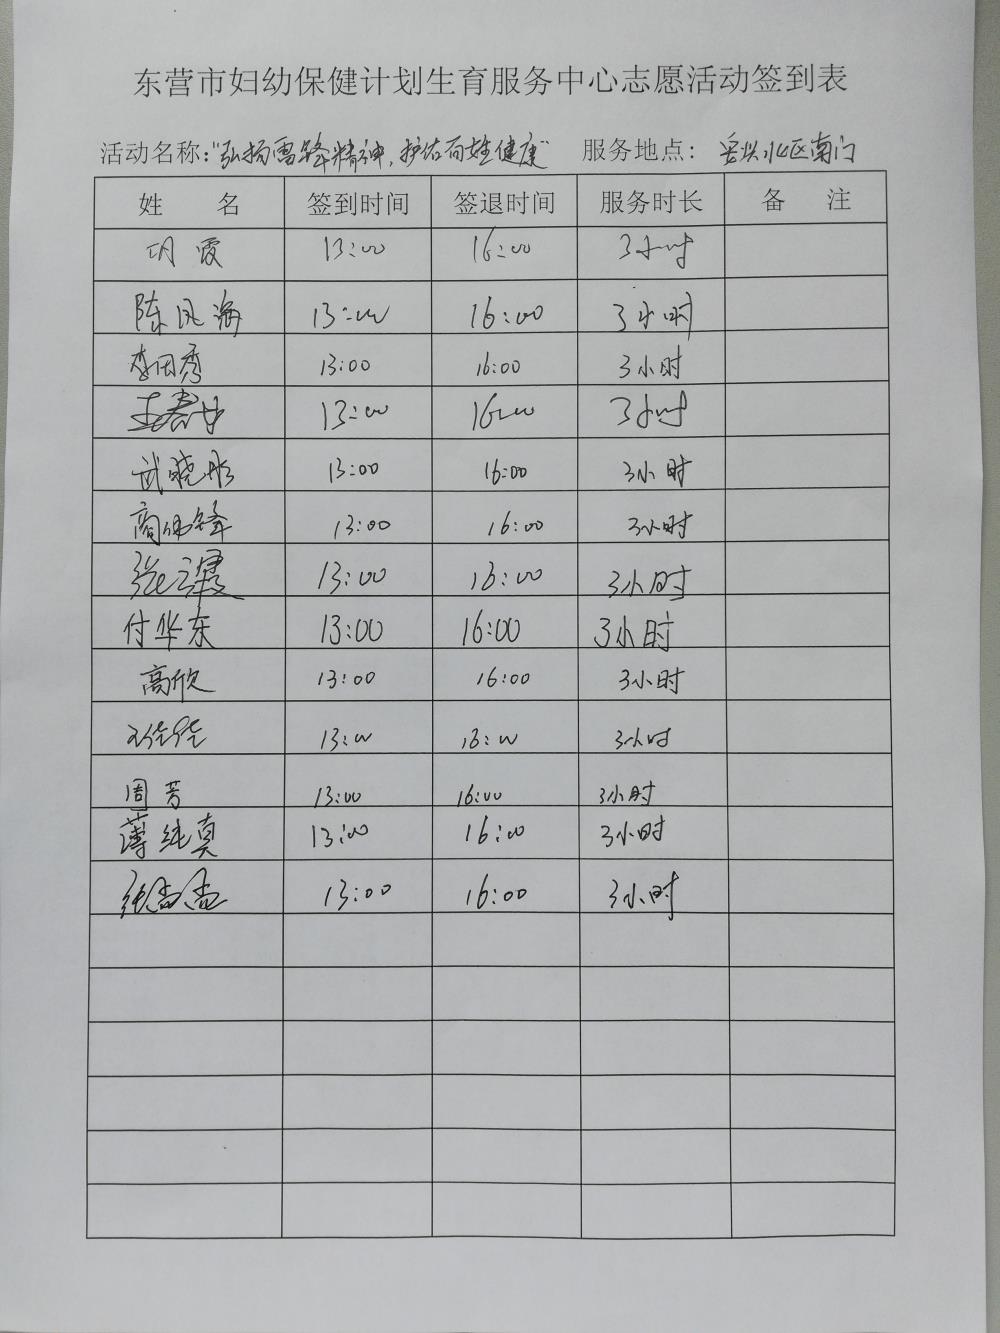 东营市妇幼保健计划生育服务中心志愿活动签到表
活动名称："弘扬雷锋精神，护佑百姓健康" 服务地点： 北区南门
姓 名 签到时间 签退时间 服务时长 备 注
霞 13:00 16:00 3小时
陈凤海 13:00 16:00 3小时
李田秀 13:00 16:00 3小时
王春 13:00 16:00 3小时
武晓彤 13:00 16:00 3小时
商伟锋 13:00 16:00 3小时
张云霞 13:00 16:00 3小时
付华东 13:00 16:00 3小时
高欣 13:00 16:00 3小时
王佳佳 13:00 16:00 3小时
周芳 13:00 16:00 3小时
薄纯真 13:00 16:00 3小时
张孟孟 13:00 16:00 3小时